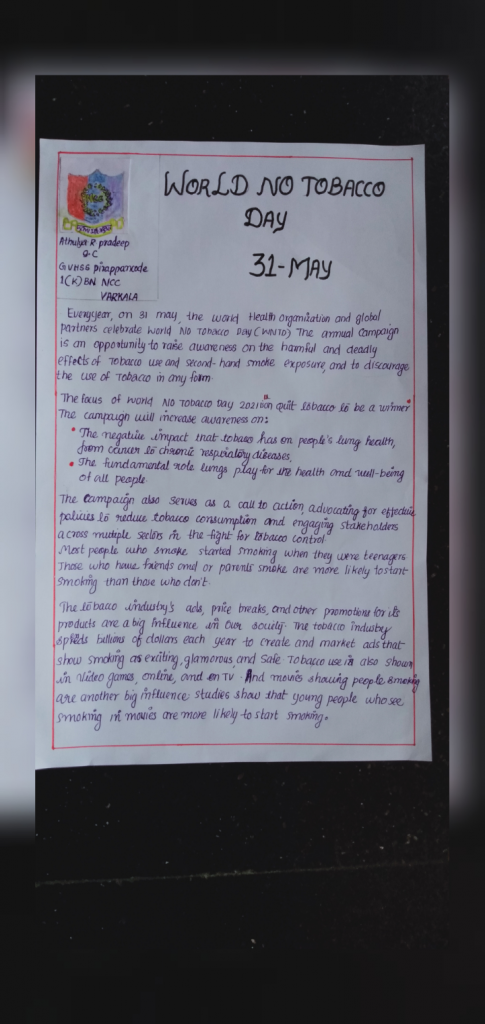 WORLD NO TOBACCO
DAY
31-MAY
Athulya R pradeep
9-C
GVHSS pirappancode
1(K)BN NCC
VARKALA
Everyyear, on 31 may, the world Health organization and global
partners celebrate World No Tobacco Day (WNTD) The annual campaign
is an opportunity to raise awareness on the harmful and deadly
effects of Tobacco use and second-hand smoke exposure, and to discourage
the use of Tobacco in any form.
The focus of World NO Tobacco Day 2021 on "quit tobacco to be a winner"
The campaign will increase awareness on:
• The negative impact that tobaco has on people's lung health,
from cancer to chronic respiratory diseases.
• The fundamental role lungs play for the health and well-being
of all people
The campaign also serves as a call to action, advocating for effective
policies to reduce tobacco consumption and engaging stakeholders
across multiple sectors in the fight for tobacco control
Most people who smoke started smoking when they were teenagers
Those who have friends and or parents smoke are more likely to start
smoking than those who don't.
The tobacco industry's ads, price breaks, and other promotions for its
products are a big influence in our society. The tobacco industry
spends billions of dollars each year to create and market ads that
show smoking as exciting, glamorous, and safe Tobacco use in also shown
in video games, online, and on TV. And movies showing people smoking
are another big influence. studies show that young people who see
smoking in movies are more likely to start smoking.